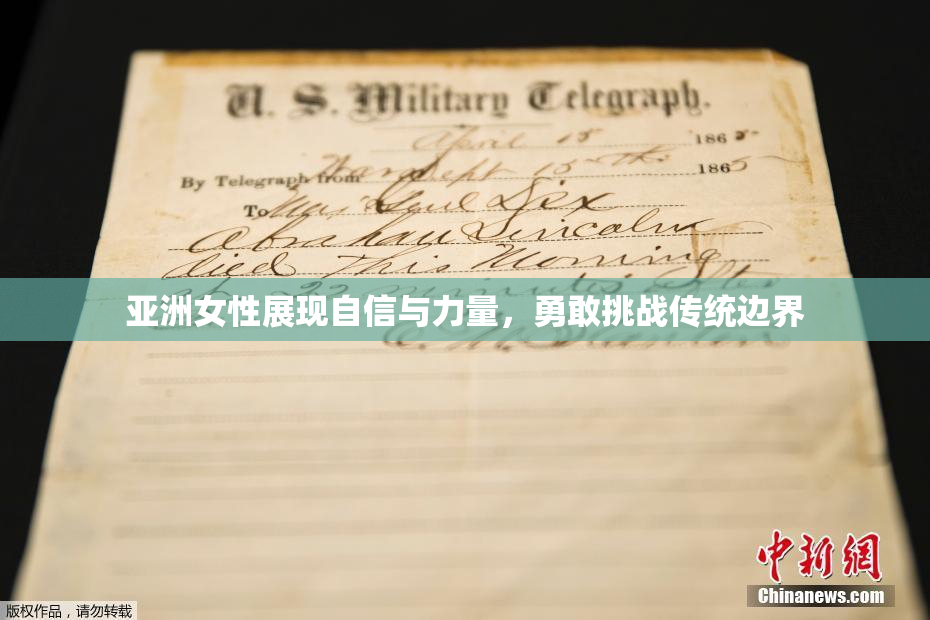 U. S. Military Telegraph.
April 15 1865
By Telegraph from War Dept 15th 1865
To Maj Genl Dix
Abraham Lincoln
died This Morning
at 22 minutes after
亚洲女性展现自信与力量，勇敢挑战传统边界
E. M. Stanton
中新网
Chinanews.com
版权作品，请勿转载